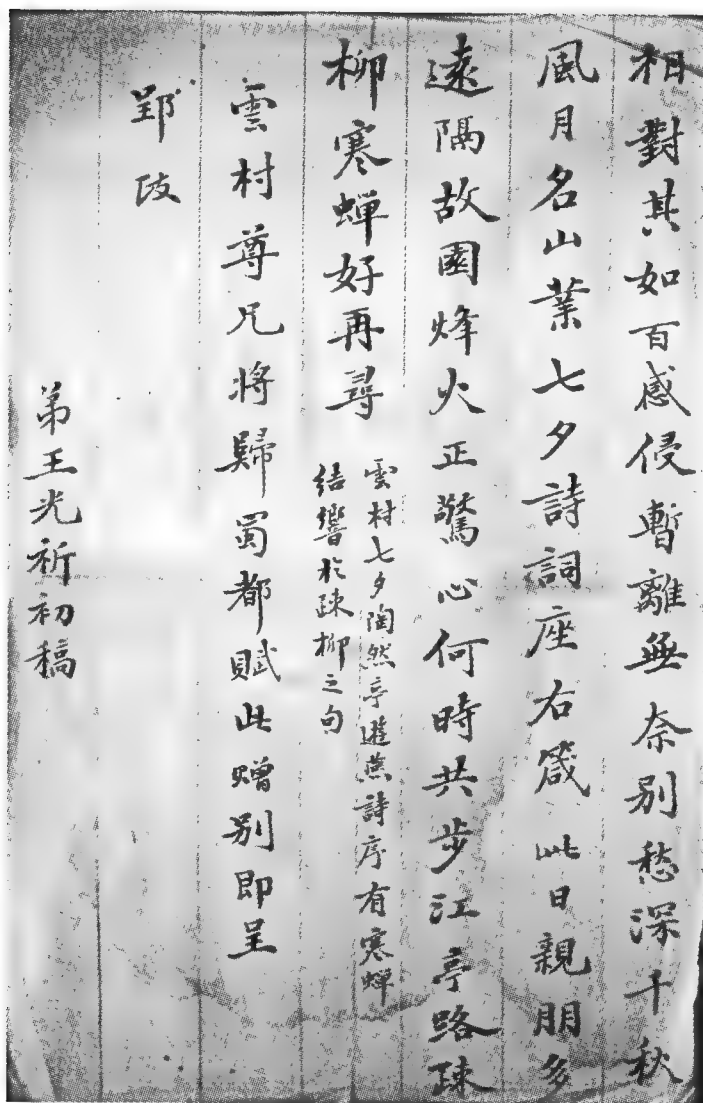 相對其如百感侵暫離無奈別愁深千秋
風月名山業七夕詩詞座右箴此日親朋多
遠隔故園烽火正驚心何時共步江亭路疎
柳寒蟬好再尋
雲村七夕陶然亭遊燕詩序有寒蟬
結響於疎柳之句
雲村尊兄將歸蜀都賦此贈別即呈
郢政
弟王光祈初稿